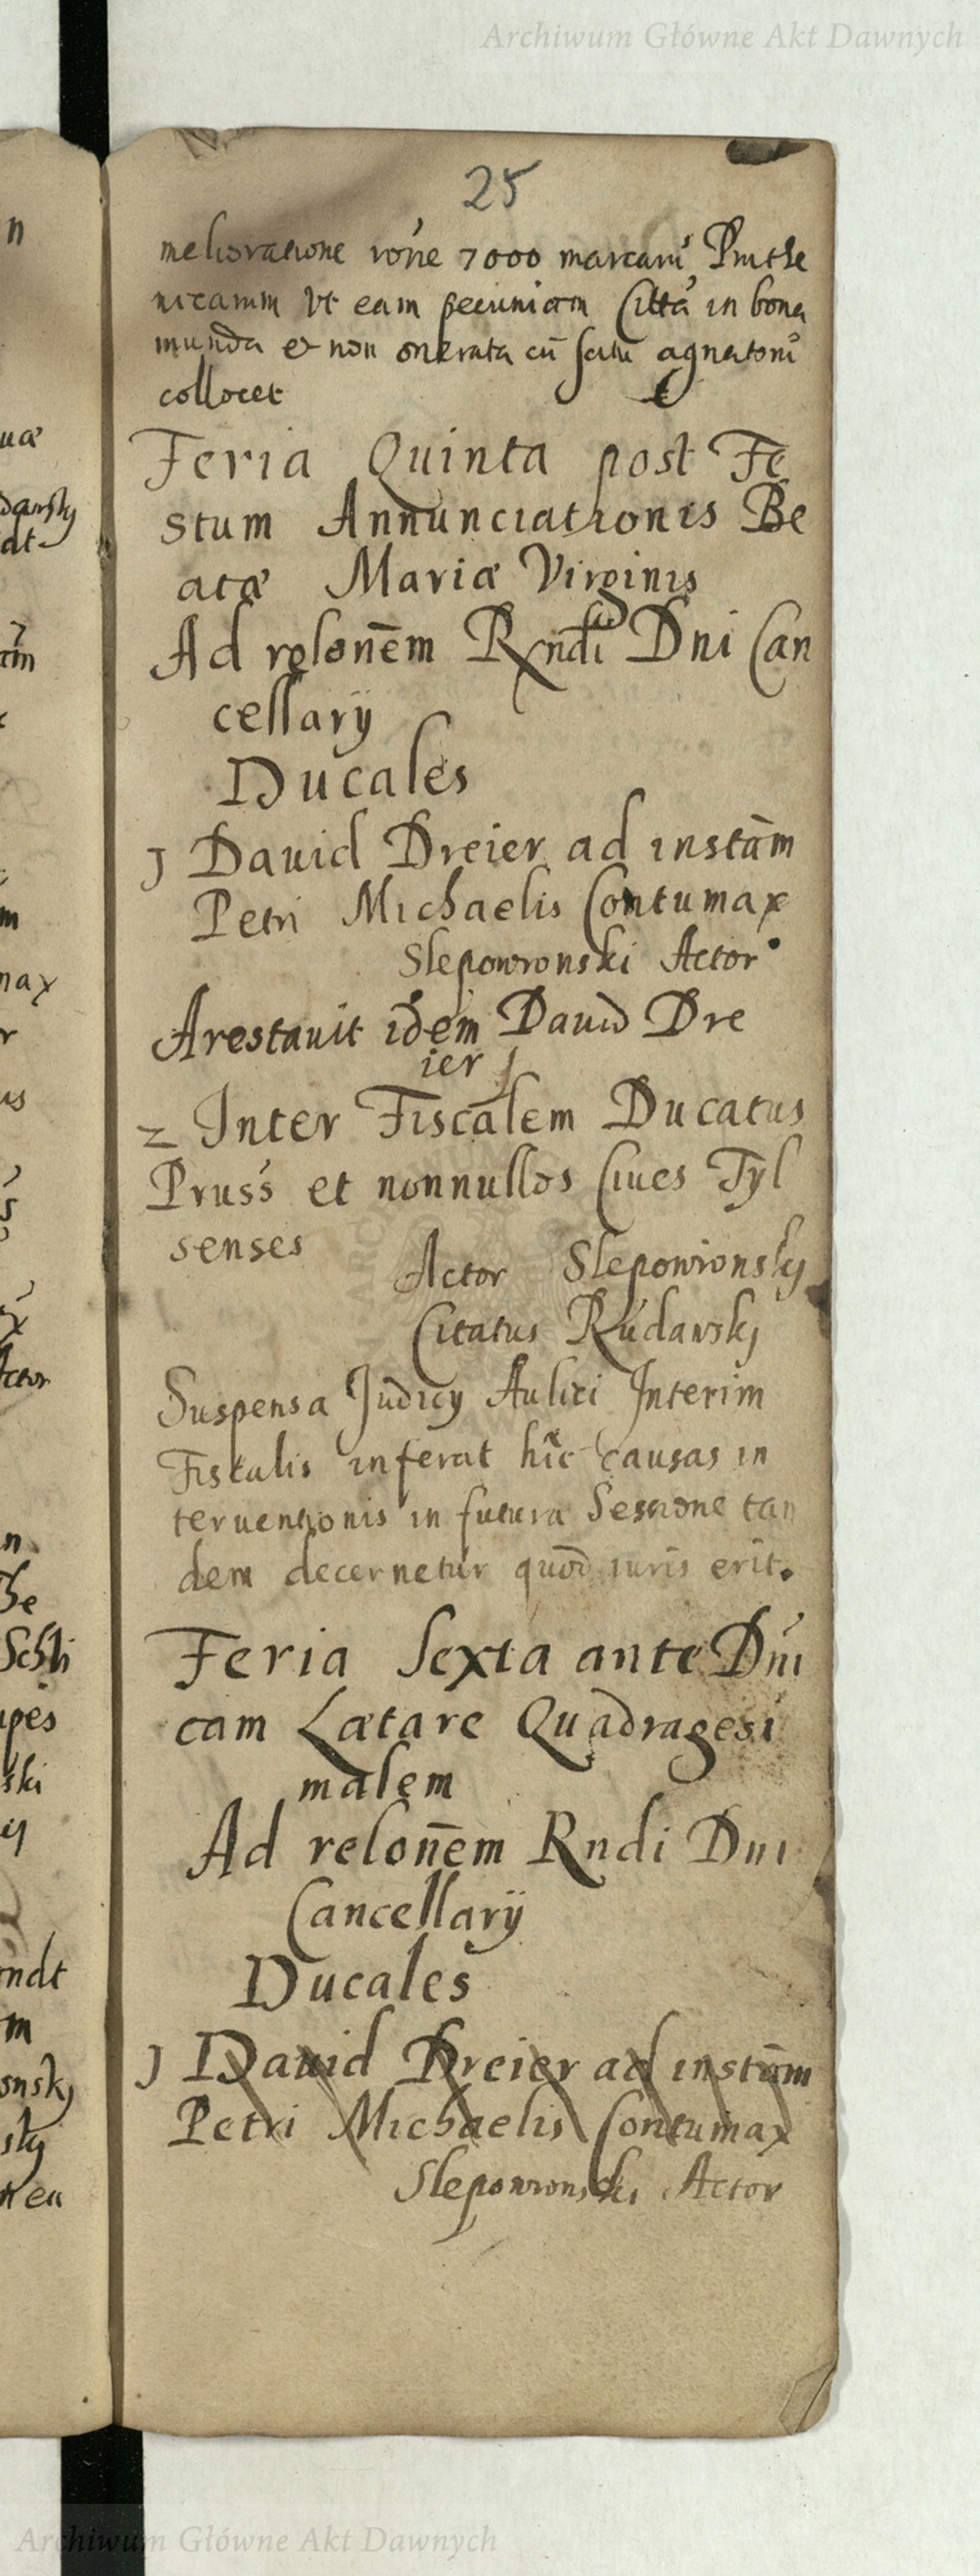 Archiwum Główne Akt Dawnych
25
melioratione rone 7000 marcaru Pruthe
nicarum Vt eam pecuniam Citta in bona
munda et non onerata cu scitu agnatoru
collocet
Feria Quinta post Fe
stum Annunciationis Be
atæ Mariæ Virginis
Ad relonem Rxndi Dni Can
cellarÿ
Ducales
J Dauid Dreier ad instam
Petri Michaelis Contumax
Slepowronski Actor
Arestauit idem Dauid Dre
ier
2 Inter Fiscalem Ducatus
Pruss et nonnullos Ciues Tyl
senses
Actor Slepowronsky
Citatus Rudawsky
Suspensa Judicy Aulici Interim
Fiscalis inferat hic causas in
teruentionis in futura Sessione tan
dem decernetur quod iuris erit.
Feria Sexta ante Dni
cam Lætare Quadragesi
malem
Ad relonem Rndi Dni
Cancellarÿ
Ducales
J Dauid Dreier ad instam
Petri Michaelis Contumax
Slepowronski Actor
Archiwum Główne Akt Dawnych